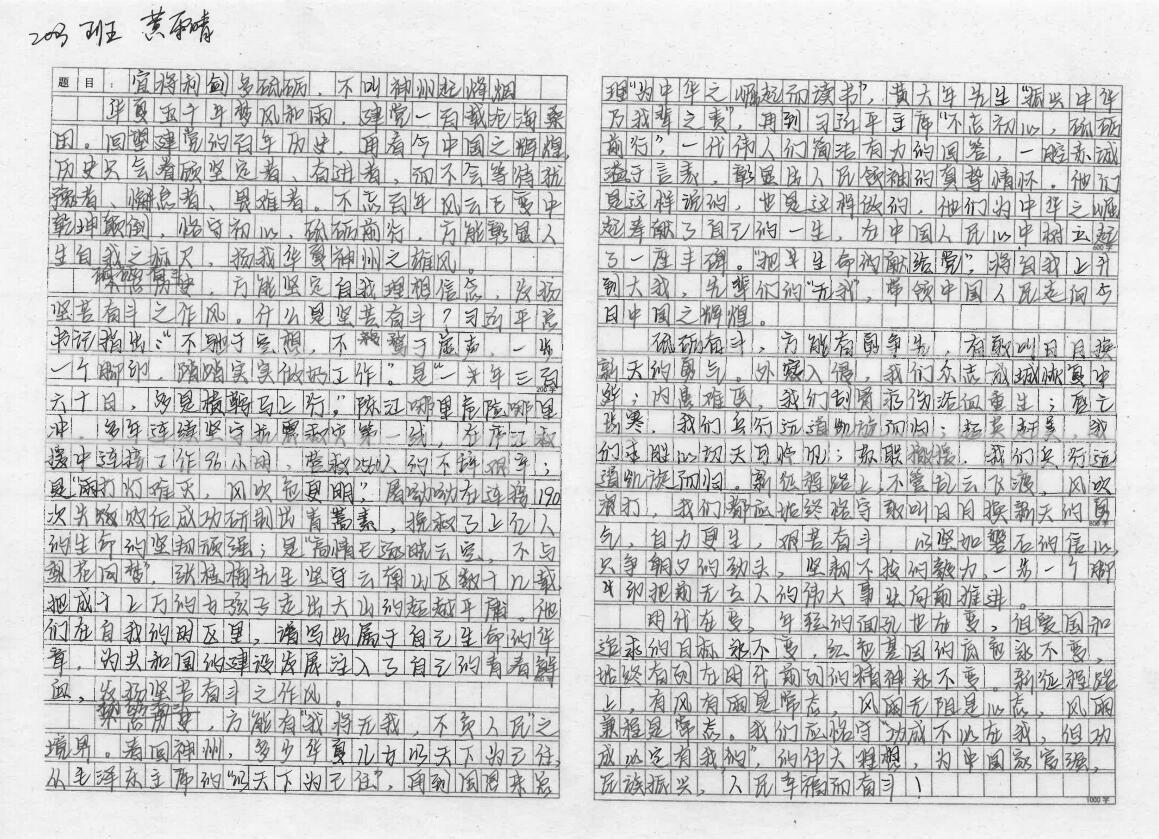 203 班 黄
题目：宜将利剑多砥砺，不叫神州起烽烟
华夏五千年梦风和雨，建党一百载沧海桑
田。回望建党的百年历史，再看今中国之辉煌，
历史只会眷顾坚定者、奋进者，而不会等待犹
豫者、懈怠者、畏难者。不忘百年风云巨变中
乾坤颠倒，恪守初心，砥砺前行，方能彰显人
生自我之标尺，扬我华夏神州之雄风。
方能坚定自我理想信念，发扬
坚苦奋斗之作风。什么是坚苦奋斗？习近平总
书记指出："不驰于空想，不骛于虚声，一步
一个脚印，踏踏实实做好工作。"是"一年三百
六十日，多是横戈马上行，"陈江哪里危险哪里
冲，多年连续坚守抗震救灾第一线，在芦江救
援中连续工作96小时，营救 人的不辞艰辛；
是"雨打灯难灭，风吹色更明"，屠呦呦在连续190
次失败后成功研制出青蒿素，挽救了上亿人
的生命的坚韧顽强；是"高情已逐晓云空，不与
梨花同梦"，张桂梅先生坚守云南山区数十几载，
把成千上万的女孩子走出大山的超越平庸。他
们在自我的时区里，谱写出属于自己生命的华
章，为共和国的建设发展注入了自己的青春鲜
血，发扬坚苦奋斗之作风。
方能有"我将无我，不负人民"之
境界。看回神州，多少华夏儿女以天下为己任，
从毛泽东主席的"以天下为己任"，再到周恩来总
理"为中华之崛起而读书"，黄大年先生"振兴中华
乃我辈之责"，再到习近平主席"不忘初心，砥砺
前行"，一代伟人们简洁有力的回答，一腔赤诚
溢于言表，彰显出人民领袖的真挚情怀。他们
是这样说的，也是这样做的，他们为中华之崛
起奉献了自己的一生，在中国人民心中树立起
了一座丰碑。"把毕生命的献给党"，将自我上升
到大我，先辈们的"无我"，带领中国人民走向今
日中国之辉煌。
砥砺奋斗，方能有勇争先，有敢叫日月换
新天的勇气。外寇入侵，我们众志成城 中
华；内患难匿，我们刮骨疗伤浴血重生；
我们 远道 而归；
们 ；我们 远
道凯旋而归。新征程路上，不管乱云飞渡，风吹
浪打，我们都应始终恪守敢叫日月换新天的勇
气，自力更生，艰苦奋斗 以坚如磐石的信心，
只争朝夕的劲头，坚韧不拔的毅力，一步一个脚
步印把前无古人的伟大事业向前推进。
时代在变，年轻的面孔也在变，但爱国和
追求的目标永不变，红色基因的底色永不变，
始终奋列在时代前列的精神永不变。新征程路
上，有风有雨是常态，风雨无阻是心态，风雨
兼程是常态。我们应恪守"功成不必在我，但功
成必定有我的"，的伟大理想，为中国家富强，
民族振兴，人民幸福而奋斗！
200字
600字
800字
1000字